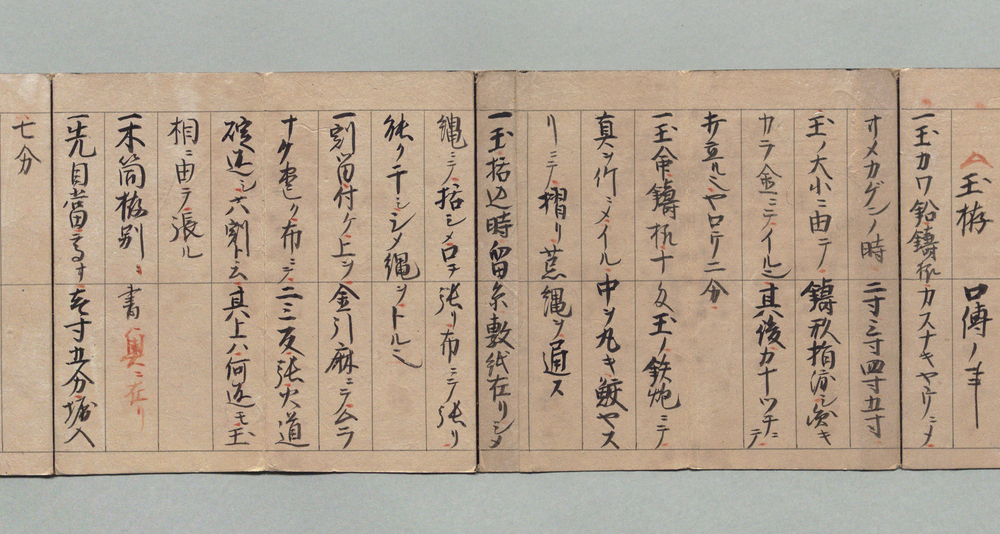 玉拵 口傳ノ事
一玉カワ鉛鑄拵カスナキヤウニメ
オメカゲンノ時 二寸三寸四寸五寸
玉ノ大小ニ由テ 鑄形指渡シ
カラ金ニテイル 其後カナツチニテ
二分
一玉金鑄拵ナ 玉ノ鉄炮ニテ
真ヲ作ニメイル 中ヲ丸キヤス
リニテ摺リ 縄ヲ通ス
一玉括込時 留糸敷紙在リシメ
縄ニテ括シメロヲ 張リ布ニテ張リ
能ク干シシメ縄ヲトル
一割留付ケ上ヲ 金引麻ニテムラ
ナク巻ク布ニテ 二三反張火道
六割ニ 其上ハ何返モ玉
相ニ由テ張ル
一木筒拵別ニ 書 奥ニ在リ
一先目當高サ 壱寸五分堀入
七分